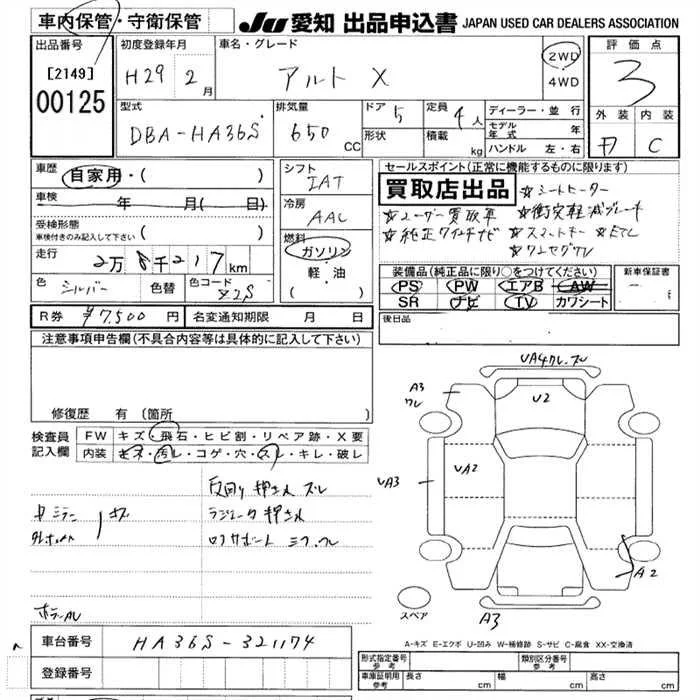 車内保管・守衛保管
JU 愛知 出品申込書 JAPAN USED CAR DEALERS ASSOCIATION
出品番号
[2149]
00125
初度登録年月
H29 2月
車名・グレード
アルト X
2WD
4WD
評価点
3
型式
DBA-HA36S
排気量
650 CC
ドア 5
形状
定員 4人
積載 kg
ディーラー・並行
モデル年式 年
ハンドル 左・右
外装 内装
C
車歴
自家用・( )
車検 年 月( 日)
受検形態
車検付きのみ記入して下さい ( )
走行
2万8千217km
色 シルバー 色替 色コード Z2S
シフト
IAT
冷房
AAC
燃料
ガソリン
軽・油
( )
セールスポイント(正常に機能するものに限ります)
買取店出品
☆シートヒーター
☆ユーザー買取車 ☆衝突軽減ブレーキ
☆純正ワイドナビ ☆スマートキー ☆ETC
☆ワンセグTV
装備品(純正品に限り○をつけてください)
PS PW エアB AW
SR ナビ TV カワシート
新車保証書
R券 ¥7,500 円 名変通知期限 月 日
後日品
注意事項申告欄(不具合内容等は具体的に記入して下さい)
修復歴 有 (箇所 )
検査員記入欄
FW キズ・飛石・ヒビ割・リペア跡・X要
内装 キズ・汚レ・コゲ・穴・スレ・キレ・破レ
反回り押され ズレ
ラジエータ押され
中ミラー
キズ
VA4ワレ,ズレ
A3
ワレ
U2
VA2
VA3
A2
A3
スペア
A-キズ E-エクボ U-凹み W-補修跡 S-サビ C-腐食 XX-交換済
車台番号 HA36S-321174
登録番号
形式指定番号 参考
類別区分番号 参考
車庫証明用 参考 長さ cm 幅 cm 高さ cm